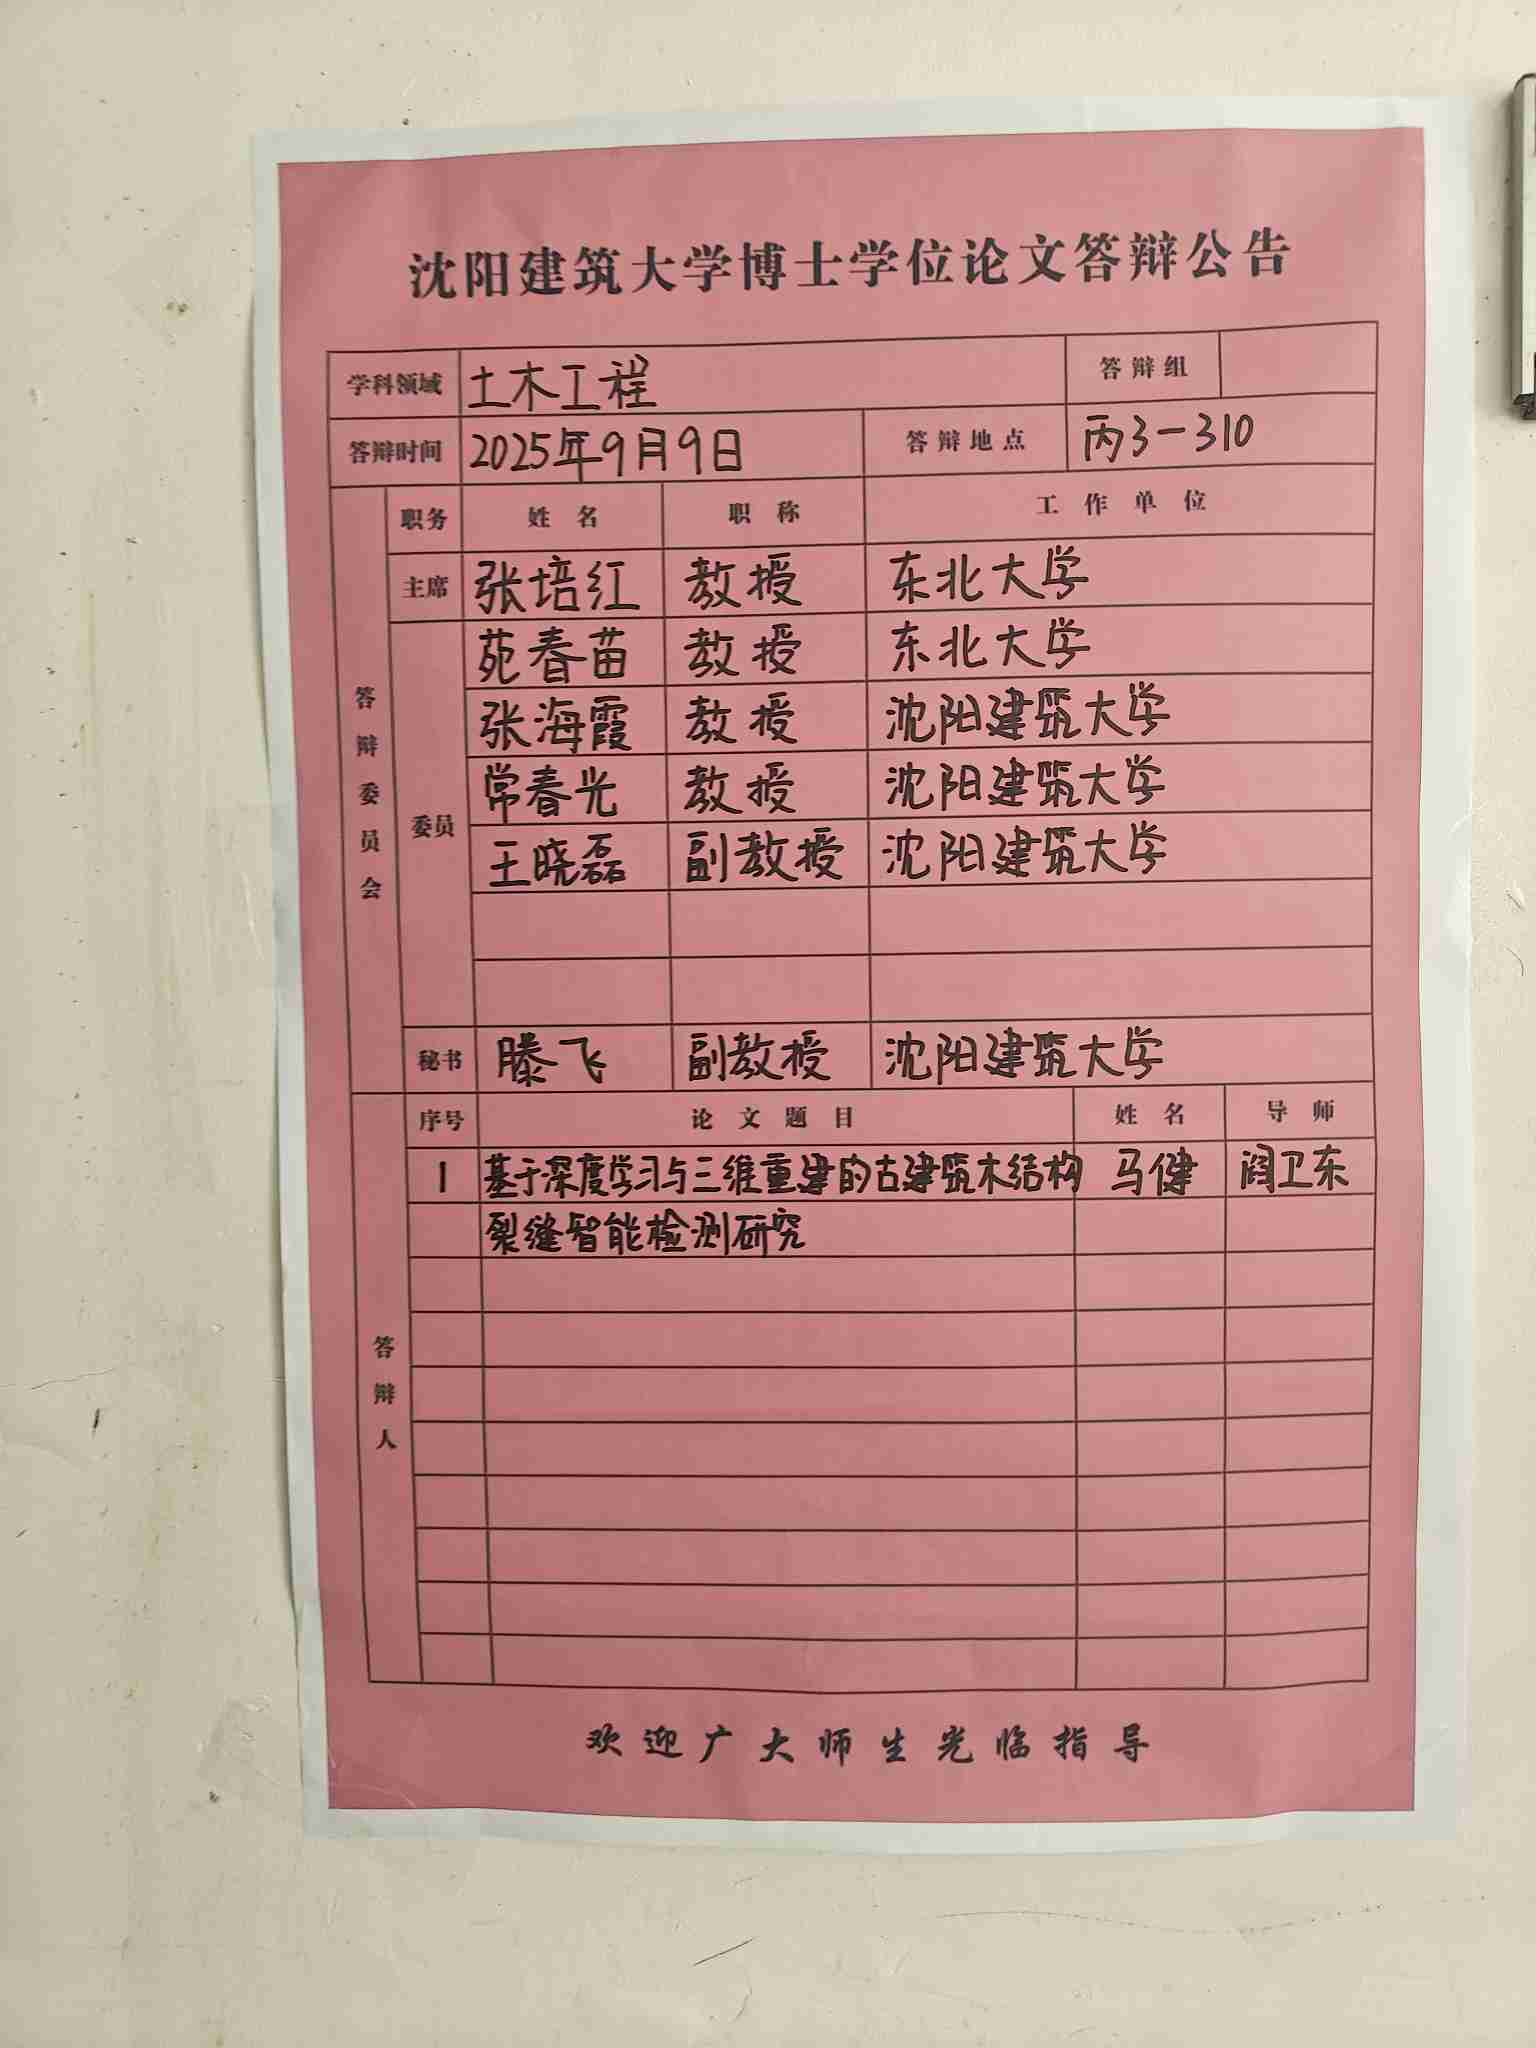 沈阳建筑大学博士学位论文答辩公告
学科领域 土木工程 答辩组
答辩时间 2025年9月9日 答辩地点 丙3-310
答辩委员会
职务 姓名 职称 工作单位
主席 张培红 教授 东北大学
委员
苑春苗 教授 东北大学
张海霞 教授 沈阳建筑大学
常春光 教授 沈阳建筑大学
王晓磊 副教授 沈阳建筑大学
秘书 滕飞 副教授 沈阳建筑大学
答辩人
序号 论文题目 姓名 导师
1 基于深度学习与三维重建的古建筑木结构 马健 阎卫东
裂缝智能检测研究
欢迎广大师生光临指导